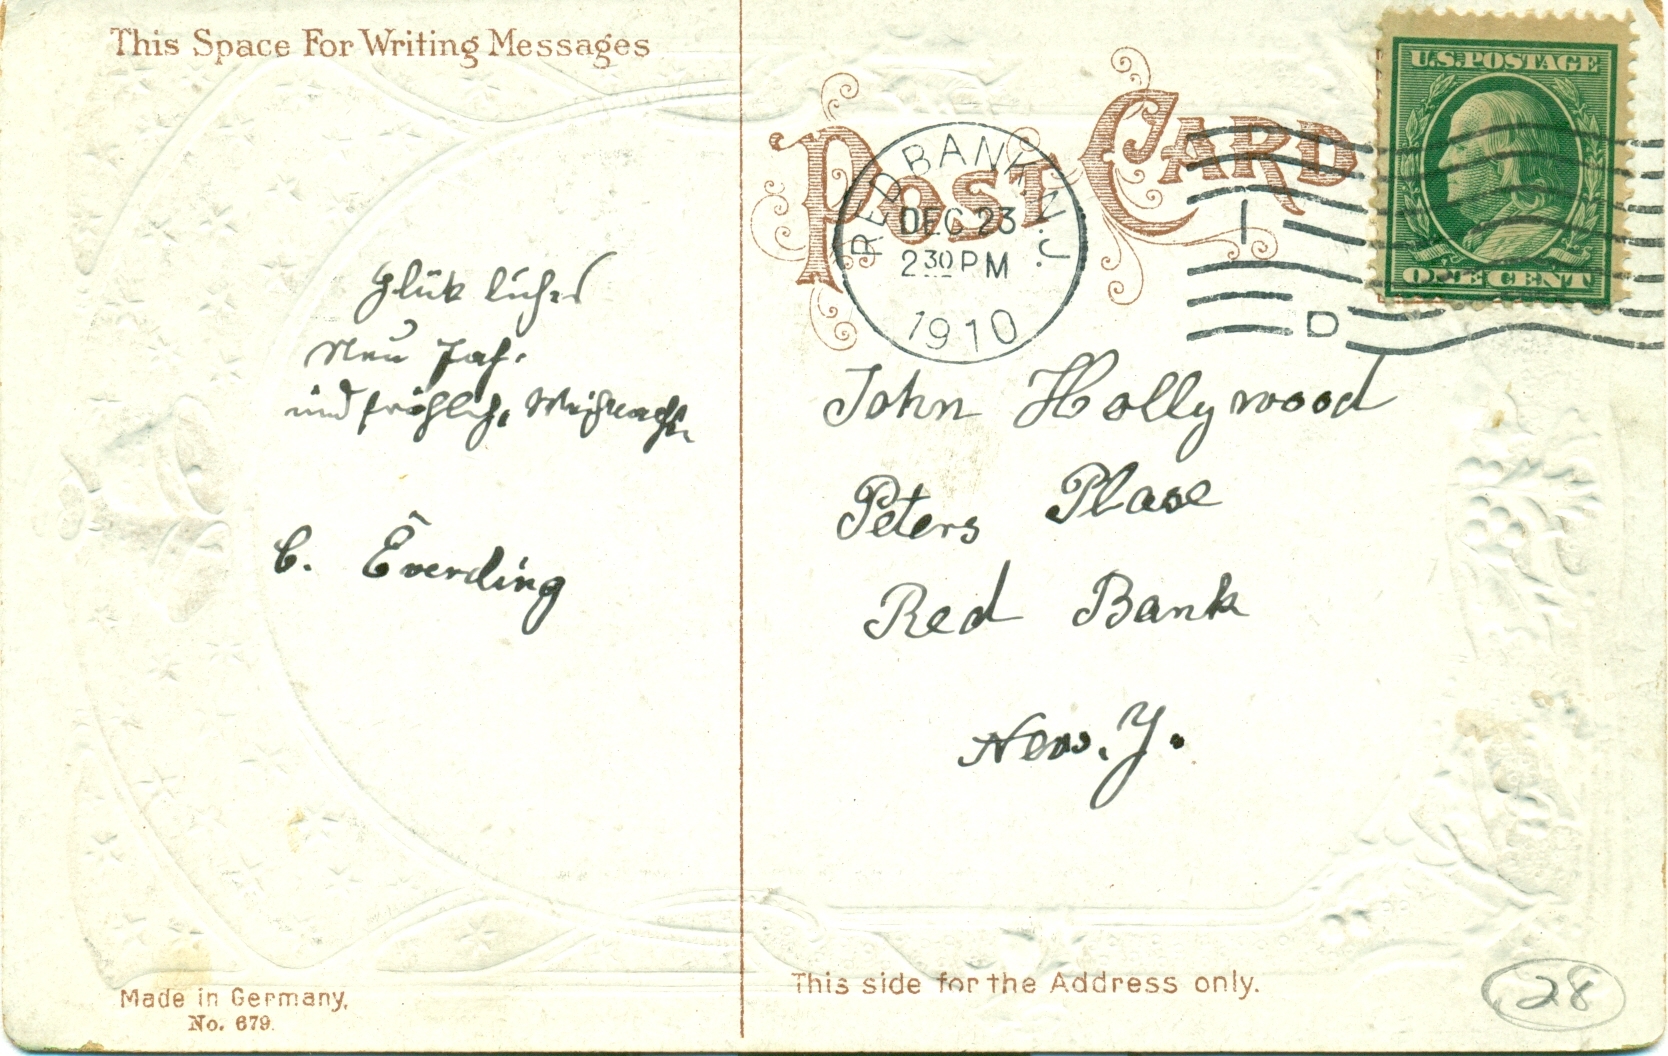 This Space For Writing Messages
Glük liches
Neu Jah.
und fröhliche Weihnacht.
C. Everding
Made in Germany.
No. 679.
POST CARD
RED BANK, N.J.
DEC 23
2 30 PM
1910
1
D
U.S. POSTAGE
ONE CENT
John Hollywood
Peters Plase
Red Bank
New. Y.
This side for the Address only.
28